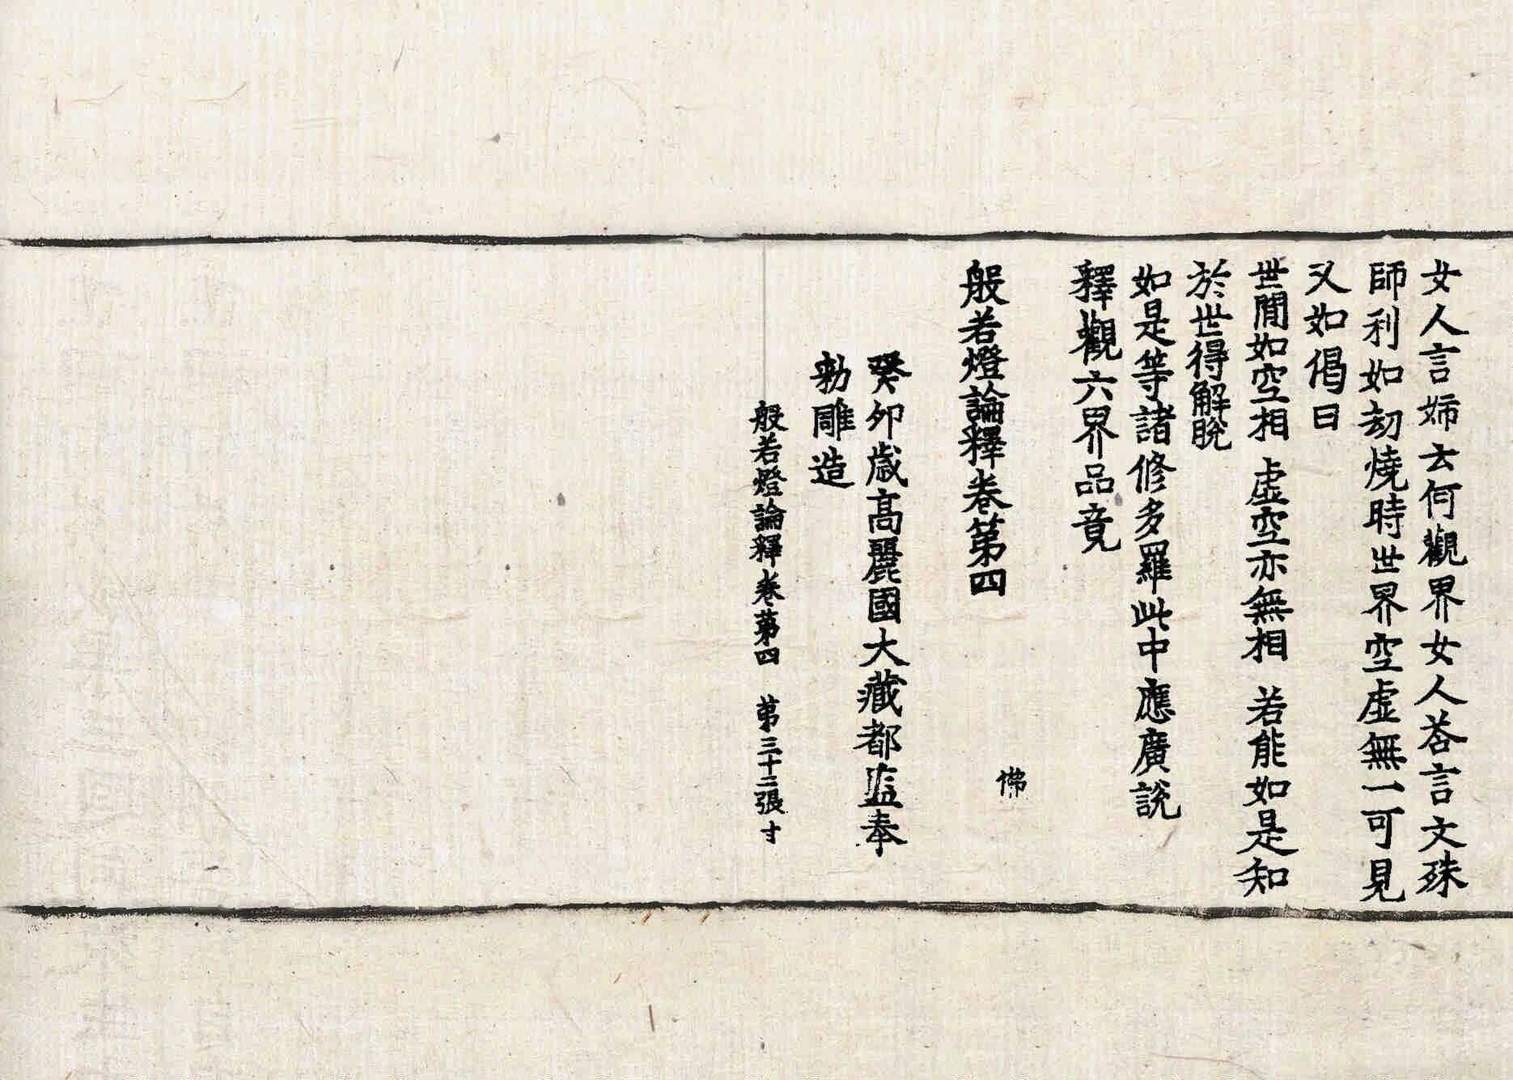 女人言姉去何觀界女人荅言文殊
師利如劫燒時世界空虛無一可見
又如偈曰
世間如空相 虛空亦無相 若能如是知
於世得解脫
如是等諸修多羅此中應廣說
釋觀六界品竟
般若燈論釋卷第四
佛
癸卯歲高麗國大藏都監奉
勅雕造
般若燈論釋卷第四 第三十二張 寸